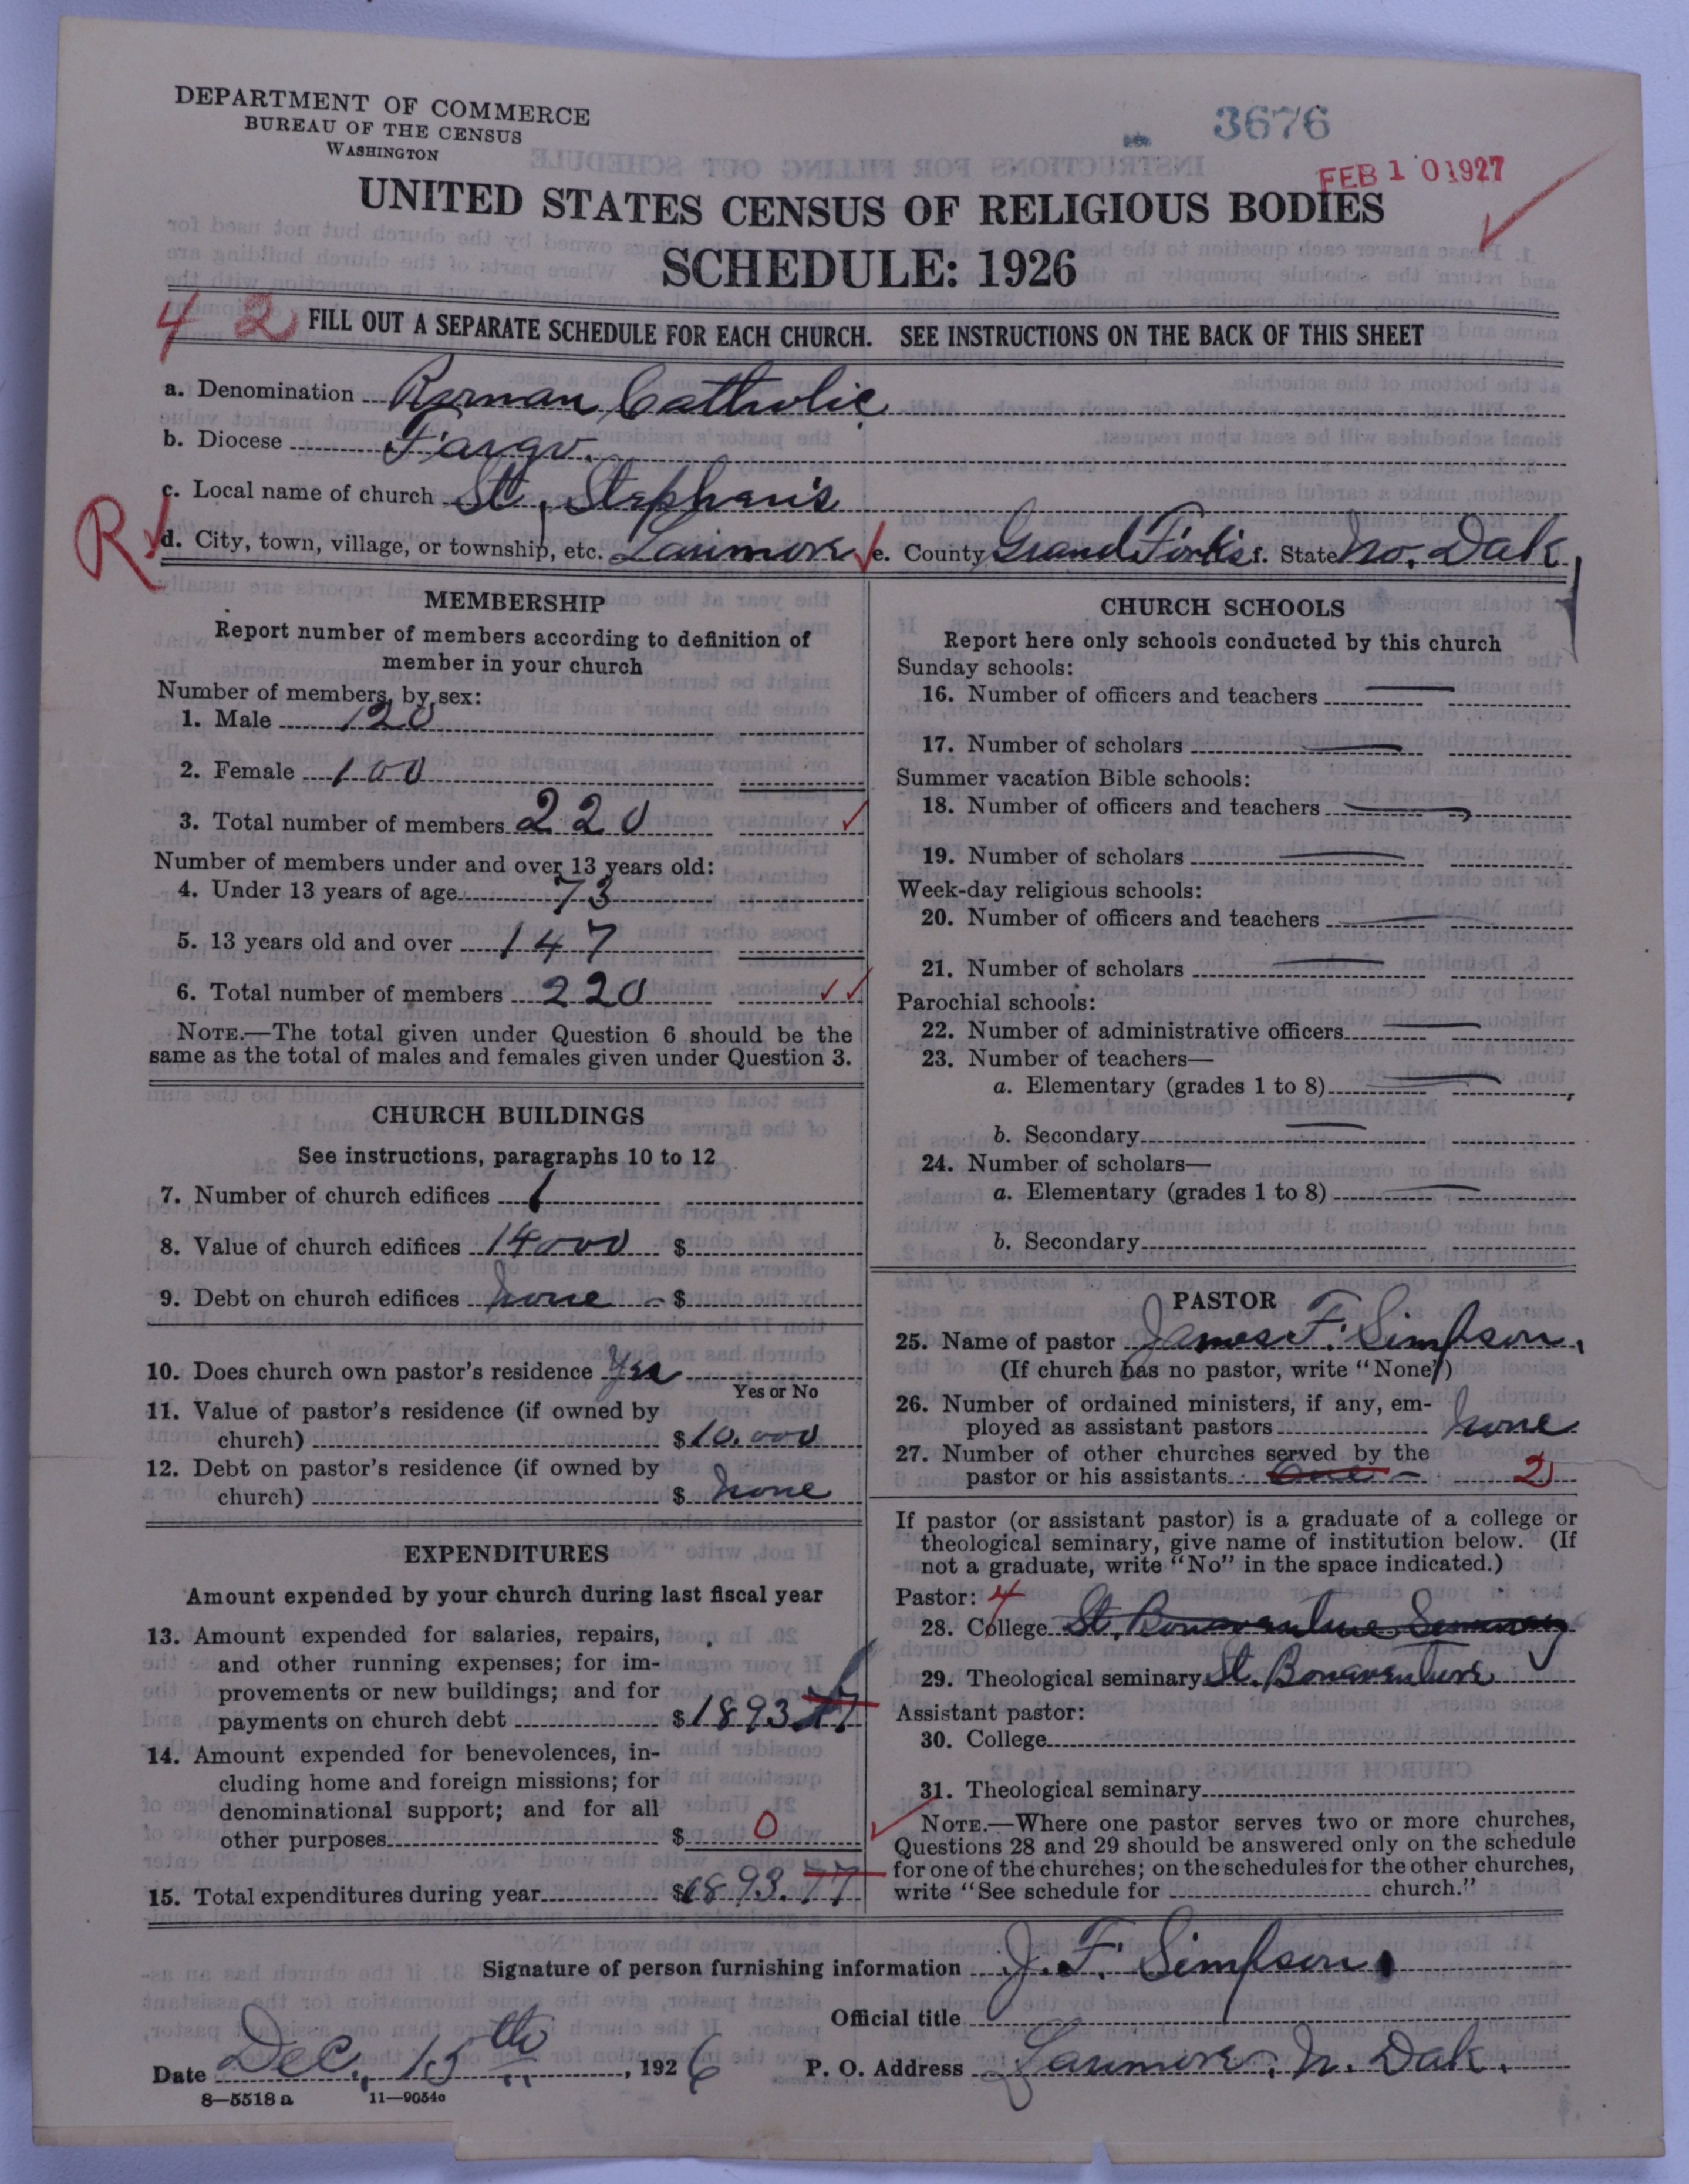 DEPARTMENT OF COMMERCE
BUREAU OF THE CENSUS
WASHINGTON
3676
FEB 10 1927
UNITED STATES CENSUS OF RELIGIOUS BODIES
SCHEDULE: 1926
4 2
FILL OUT A SEPARATE SCHEDULE FOR EACH CHURCH. SEE INSTRUCTIONS ON THE BACK OF THIS SHEET
a. Denomination Roman Catholic
b. Diocese Fargo.
c. Local name of church St. Stephen's
R
d. City, town, village, or township, etc. Larimore e. County Grand Forks f. State No. Dak
MEMBERSHIP
Report number of members according to definition of
member in your church
Number of members, by sex:
1. Male 120
2. Female 100
3. Total number of members 220
Number of members under and over 13 years old:
4. Under 13 years of age 73
5. 13 years old and over 147
6. Total number of members 220
NOTE.—The total given under Question 6 should be the
same as the total of males and females given under Question 3.
CHURCH BUILDINGS
See instructions, paragraphs 10 to 12
7. Number of church edifices 1
8. Value of church edifices 14000 $
9. Debt on church edifices none - $
10. Does church own pastor's residence Yes
Yes or No
11. Value of pastor's residence (if owned by
church) $10.000
12. Debt on pastor's residence (if owned by
church) $ none
EXPENDITURES
Amount expended by your church during last fiscal year
13. Amount expended for salaries, repairs,
and other running expenses; for im-
provements or new buildings; and for
payments on church debt $1893 77
14. Amount expended for benevolences, in-
cluding home and foreign missions; for
denominational support; and for all
other purposes $ 0
15. Total expenditures during year $1893.77
CHURCH SCHOOLS
Report here only schools conducted by this church
Sunday schools:
16. Number of officers and teachers —
17. Number of scholars —
Summer vacation Bible schools:
18. Number of officers and teachers —
19. Number of scholars —
Week-day religious schools:
20. Number of officers and teachers —
21. Number of scholars —
Parochial schools:
22. Number of administrative officers —
23. Number of teachers—
a. Elementary (grades 1 to 8) —
b. Secondary —
24. Number of scholars—
a. Elementary (grades 1 to 8) —
b. Secondary
PASTOR
25. Name of pastor James F. Simpson.
(If church has no pastor, write "None")
26. Number of ordained ministers, if any, em-
ployed as assistant pastors none
27. Number of other churches served by the
pastor or his assistants One - 2
If pastor (or assistant pastor) is a graduate of a college or
theological seminary, give name of institution below. (If
not a graduate, write "No" in the space indicated.)
Pastor: 4
28. College St. Bonaventure Seminary
29. Theological seminary St. Bonaventure
Assistant pastor:
30. College
31. Theological seminary
NOTE.—Where one pastor serves two or more churches,
Questions 28 and 29 should be answered only on the schedule
for one of the churches; on the schedules for the other churches,
write "See schedule for church."
Signature of person furnishing information J. F. Simpson.
Official title
Date Dec. 15th, 1926 P. O. Address Larimore, N. Dak.
8—5518 a 11—9054c